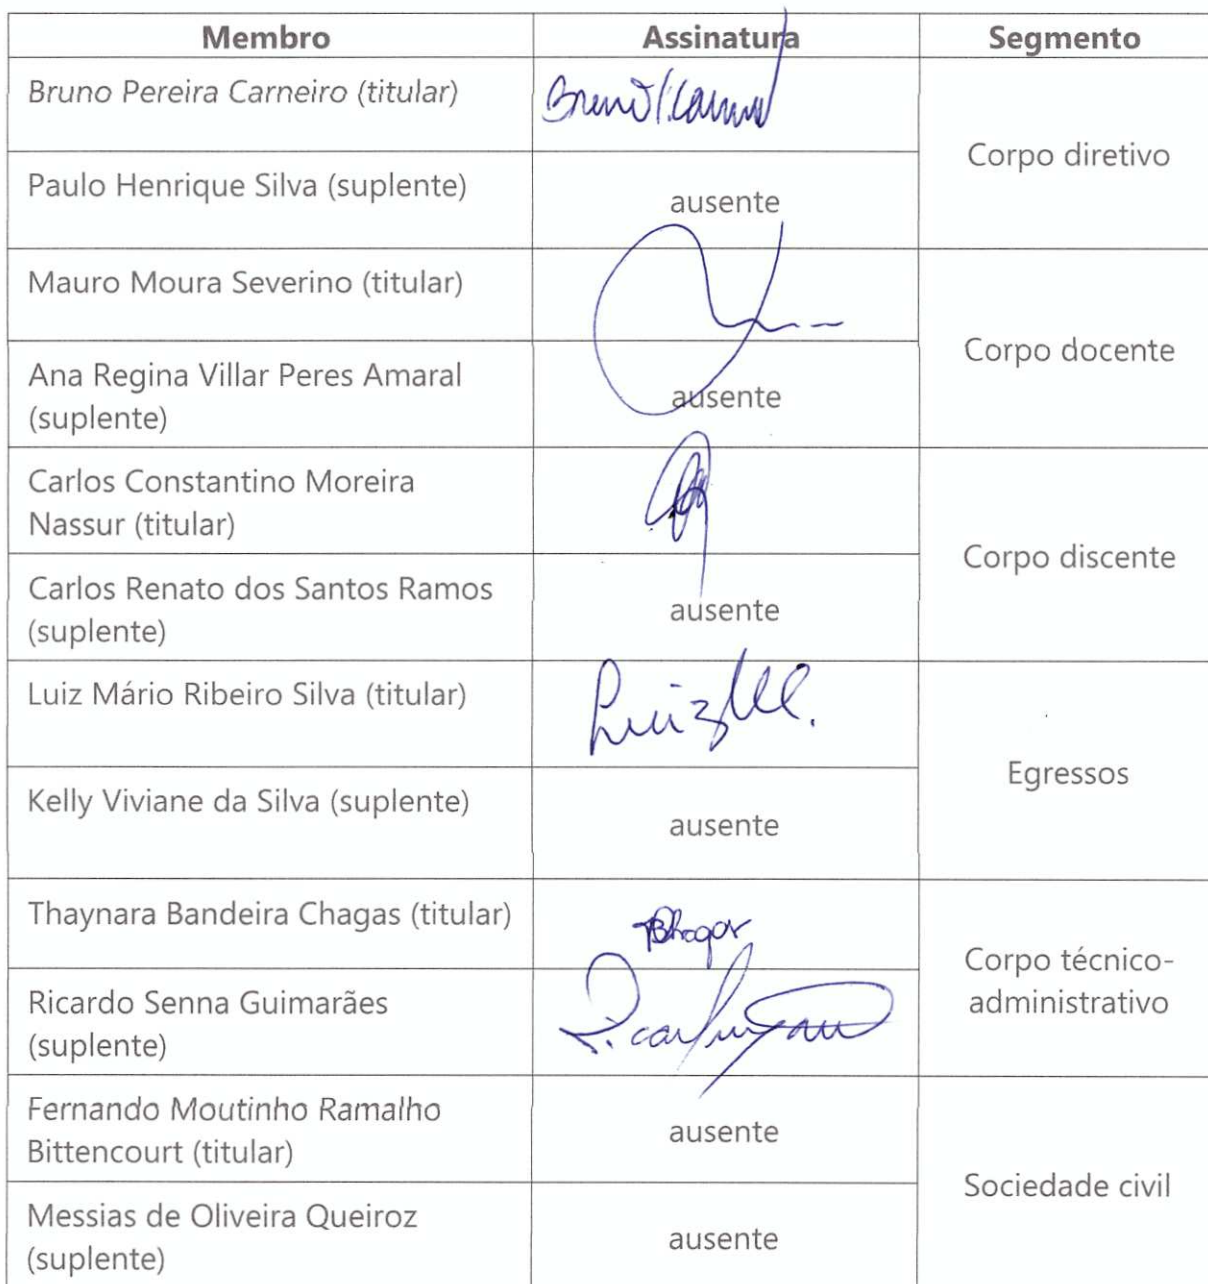 Membro Assinatura Segmento
Bruno Pereira Carneiro (titular)
Corpo diretivo
Paulo Henrique Silva (suplente)
ausente
Mauro Moura Severino (titular)
Corpo docente
Ana Regina Villar Peres Amaral
(suplente)
ausente
Carlos Constantino Moreira
Nassur (titular)
Corpo discente
Carlos Renato dos Santos Ramos
(suplente)
ausente
Luiz Mário Ribeiro Silva (titular)
Luiz
Egressos
Kelly Viviane da Silva (suplente)
ausente
Thaynara Bandeira Chagas (titular)
Corpo técnico-
administrativo
Ricardo Senna Guimarães
(suplente)
Fernando Moutinho Ramalho
Bittencourt (titular)
ausente
Sociedade civil
Messias de Oliveira Queiroz
(suplente)
ausente